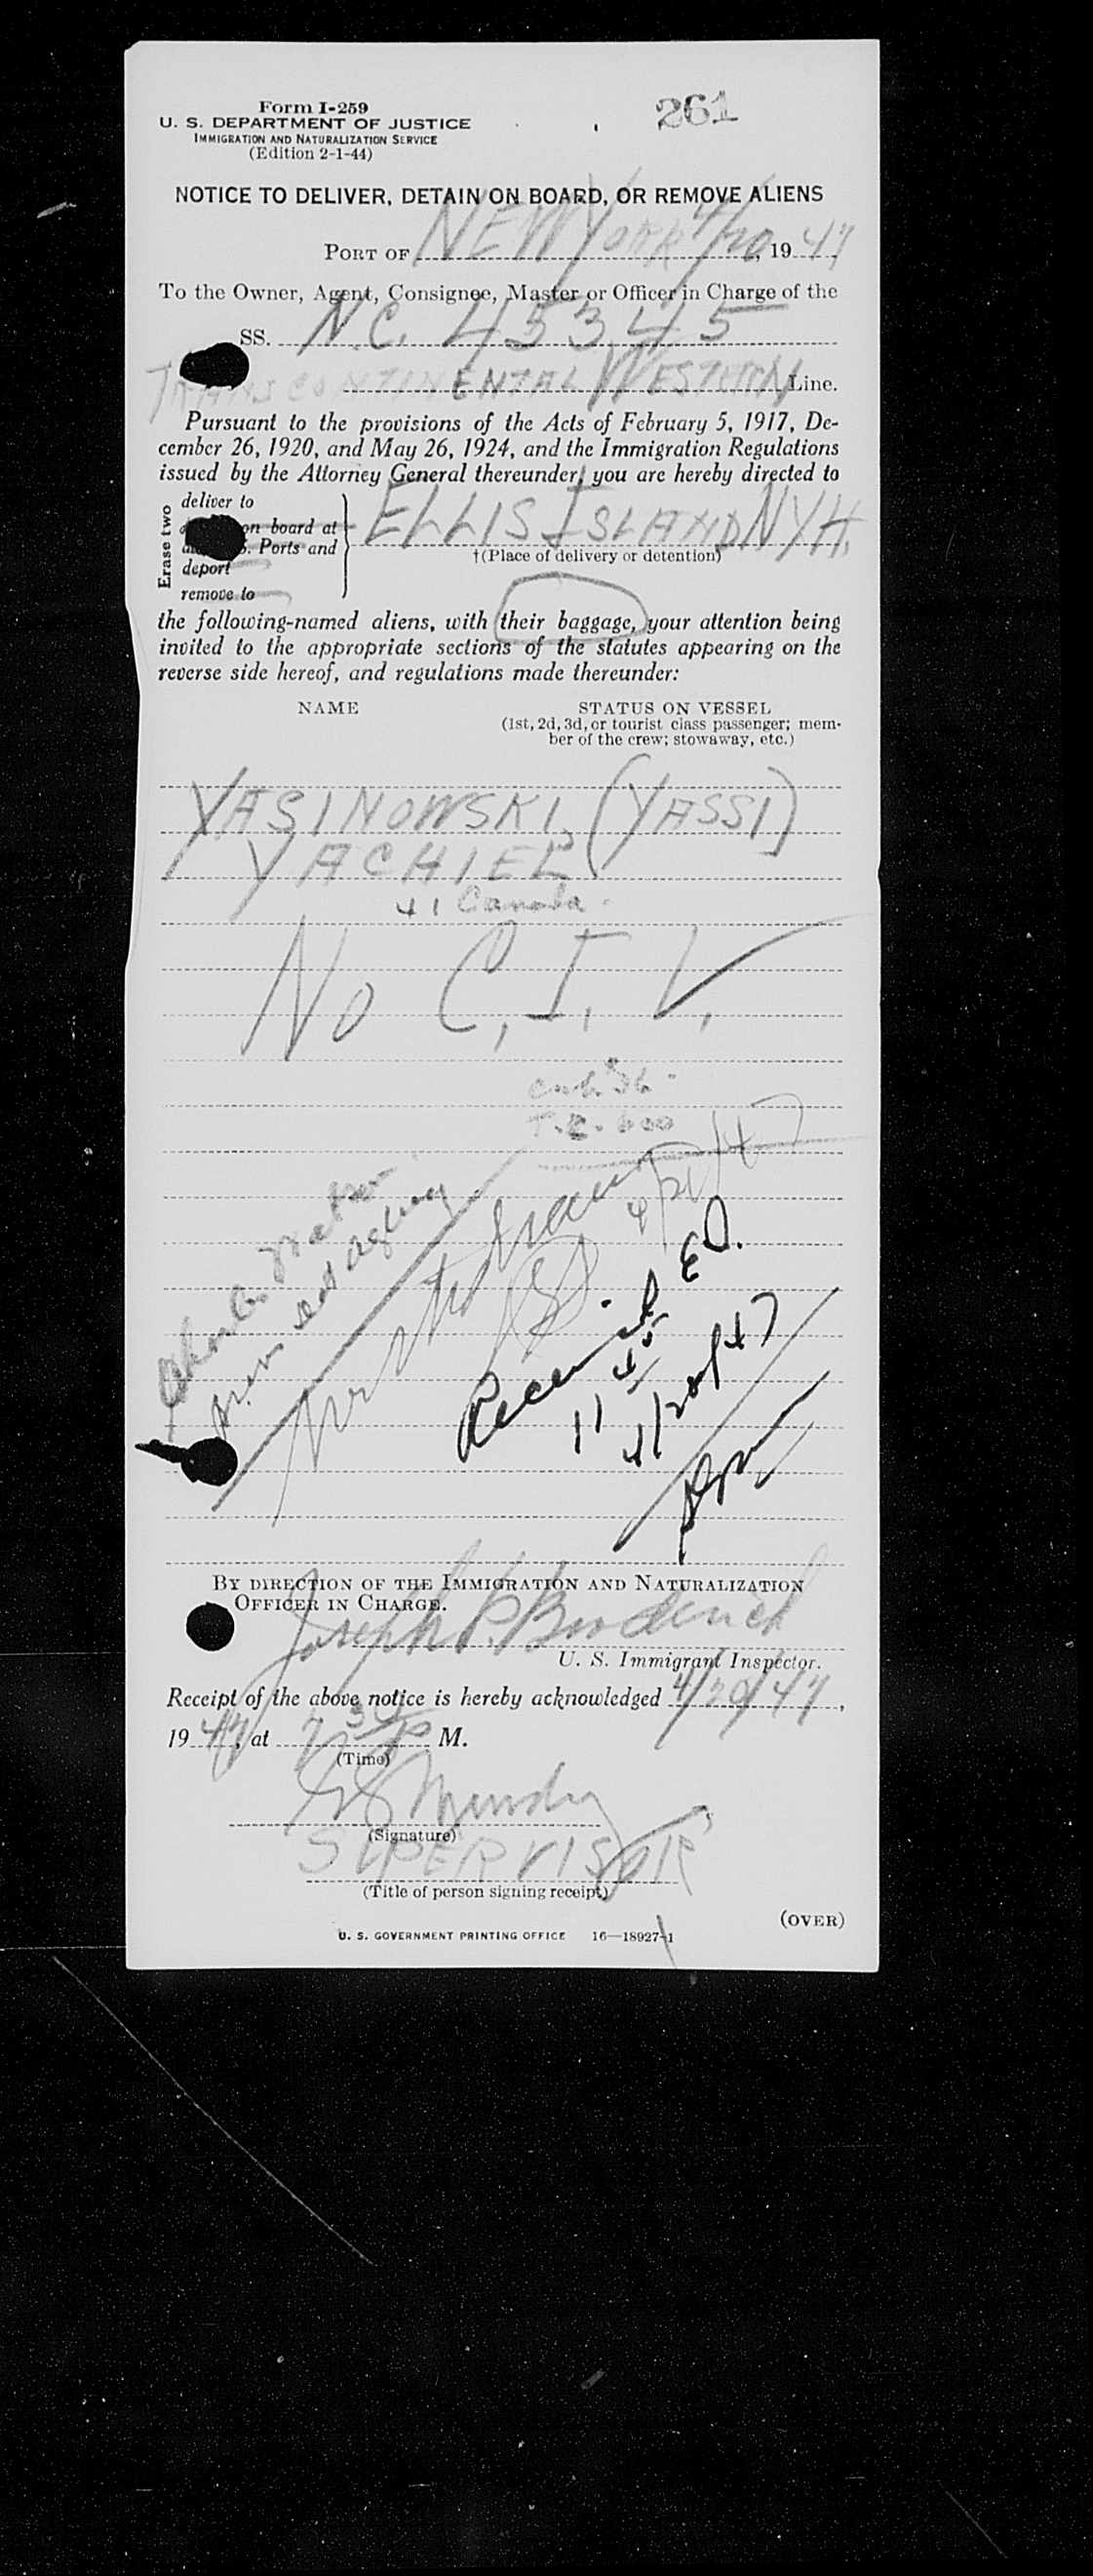 261
Form I-259
U. S. DEPARTMENT OF JUSTICE
IMMIGRATION AND NATURALIZATION SERVICE
(Edition 2-1-44)
NOTICE TO DELIVER, DETAIN ON BOARD, OR REMOVE ALIENS
PORT OF NEW YORK 4/20, 1947
To the Owner, Agent, Consignee, Master or Officer in Charge of the
SS. N.C. 45345
TRANSCONTINENTAL WESTERN Line.
Pursuant to the provisions of the Acts of February 5, 1917, De-
cember 26, 1920, and May 26, 1924, and the Immigration Regulations
issued by the Attorney General thereunder, you are hereby directed to
Erase two
deliver to
on board at
Ports and
deport
remove to
ELLIS ISLAND NYH.
†(Place of delivery or detention)
the following-named aliens, with their baggage, your attention being
invited to the appropriate sections of the statutes appearing on the
reverse side hereof, and regulations made thereunder:
NAME
STATUS ON VESSEL
(1st, 2d, 3d, or tourist class passenger; mem-
ber of the crew; stowaway, etc.)
YASINOWSKI, (YASSI)
YACHIEL
41 Canada
No C.I.V.
4/21/47
Received ED.
11 45
4/20/47
BY DIRECTION OF THE IMMIGRATION AND NATURALIZATION
OFFICER IN CHARGE.
Joseph P. Broderick
U. S. Immigrant Inspector.
Receipt of the above notice is hereby acknowledged 4/20/47,
1947, at 7 30 P M.
(Time)
(Signature)
SUPERVISOR
(Title of person signing receipt)
(OVER)
U. S. GOVERNMENT PRINTING OFFICE 16—18927-1